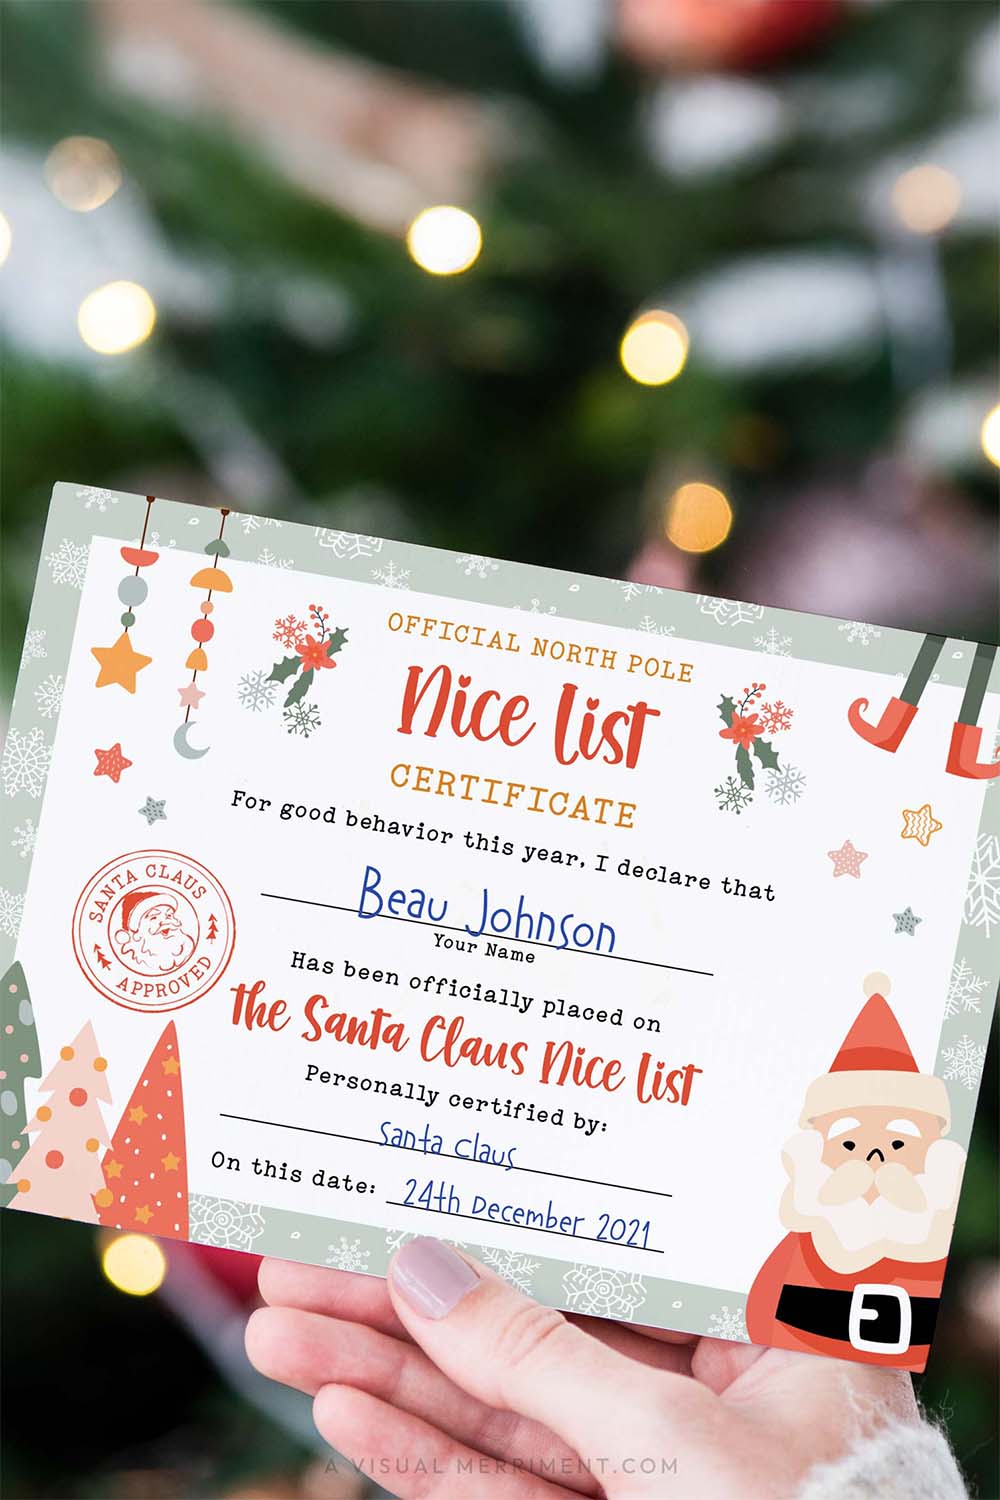 OFFICIAL NORTH POLE
Nice List
CERTIFICATE
For good behavior this year, I declare that
Beau Johnson
Your Name
Has been officially placed on
the Santa Claus Nice List
Personally certified by:
Santa Claus
On this date: 24th December 2021
SANTA CLAUS
APPROVED
A VISUAL MERRIMENT.COM